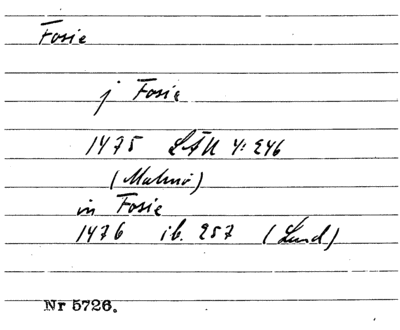 Fosie
j Fosie
1475 LÄU 4: 246
(Malmö)
in Fosie
1476 ib. 257 (Lund)
Nr 5726.